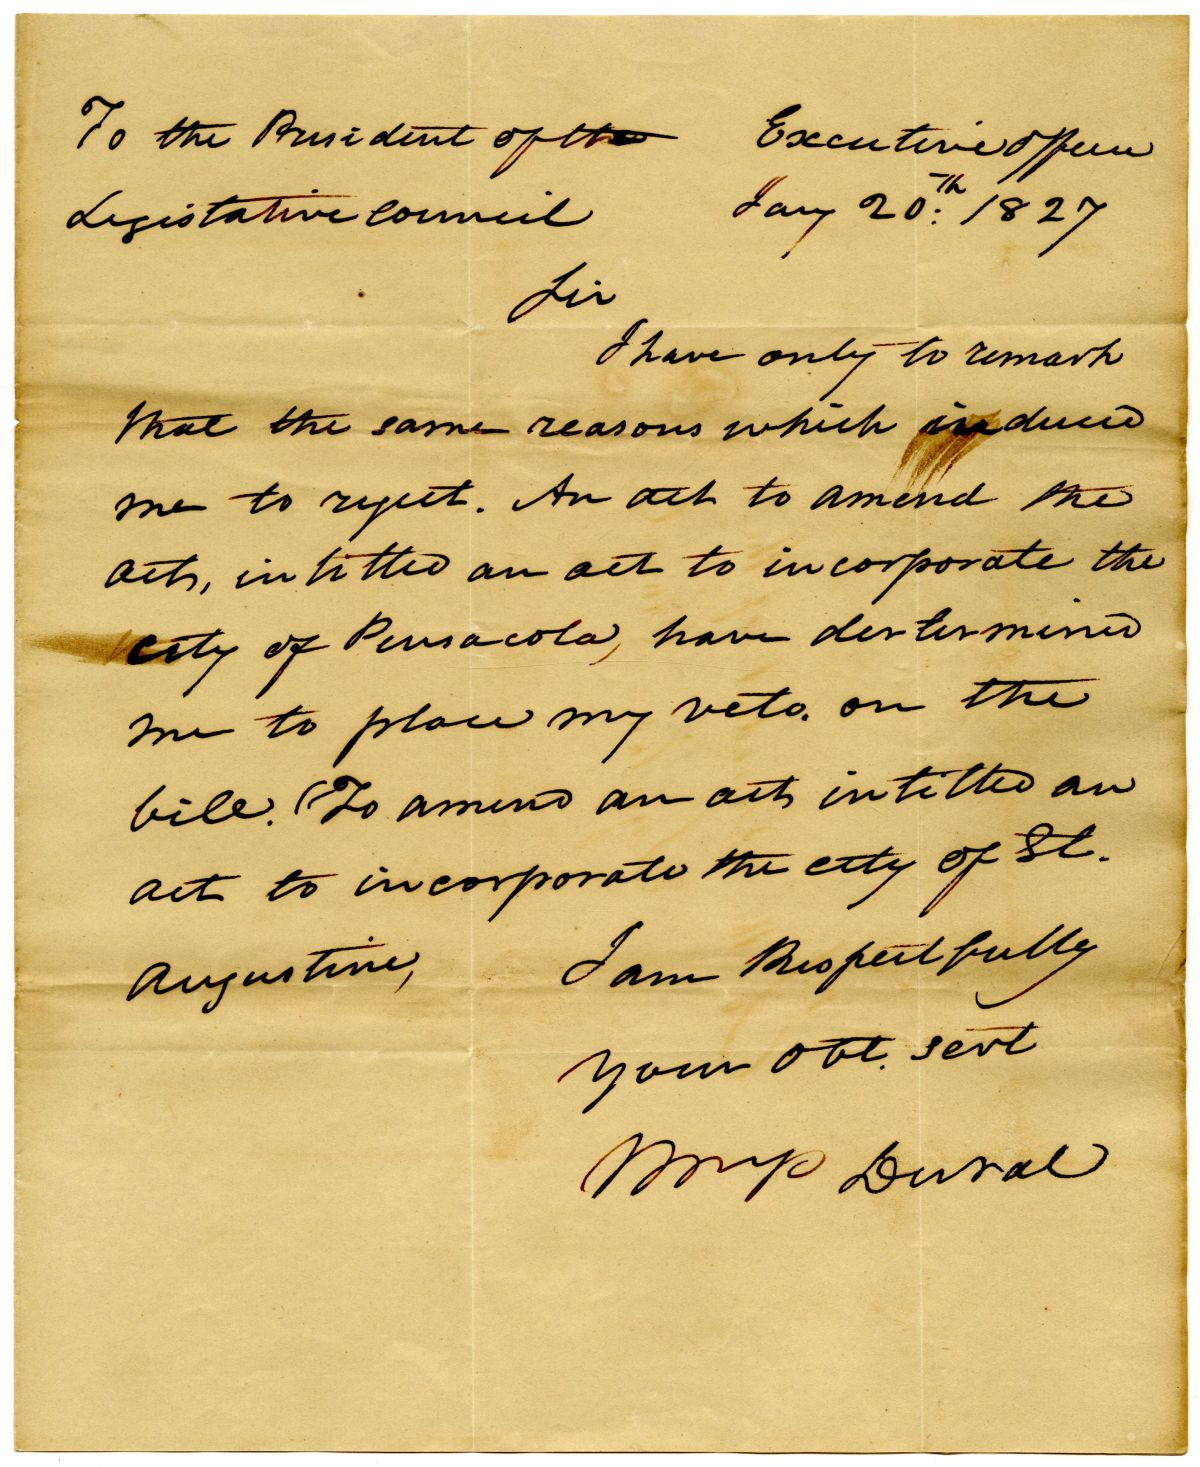 To the President of the
Legislative Council
Executive office
Jany 20th. 1827
Sir
I have only to remark
that the same reasons which induced
me to reject. An act to amend the
act, intitled an act to incorporate the
city of Pensacola, have dertermined
me to place my veto. on the
bill. (To amend an act, intitled an
act to incorporate the city of St.
Augustine,
I am Respectfully
your Obt. Servt
Wm P Duval